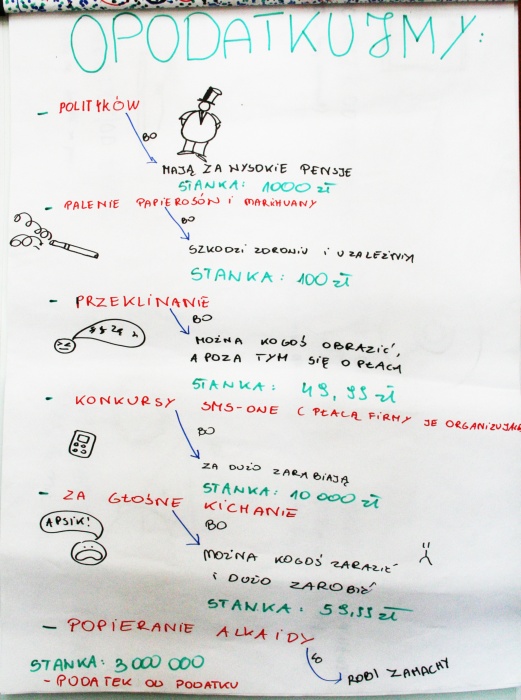 OPODATKUJMY:
- POLITYKÓW
BO
MAJĄ ZA WYSOKIE PENSJE
STAWKA: 1000 zł
- PALENIE PAPIEROSÓW I MARIHUANY
BO
SZKODZI ZDROWIU I UZALEŻNIA
STAWKA: 100 zł
- PRZEKLINANIE
BO
MOŻNA KOGOŚ OBRAZIĆ,
A POZA TYM SIĘ OPŁACA
STAWKA: 49,99 zł
- KONKURSY SMS-OWE (PŁACĄ FIRMY JE ORGANIZUJĄCE
BO
ZA DUŻO ZARABIAJĄ
STAWKA: 10 000 zł
- ZA GŁOŚNE KICHANIE
APSIK!
BO
MOŻNA KOGOŚ ZARAZIĆ
I DUŻO ZAROBIĆ
STAWKA: 59,99 zł
- POPIERANIE ALKAIDY
BO
ROBI ZAMACHY
STAWKA: 3 000 000
- PODATEK OD PODATKU